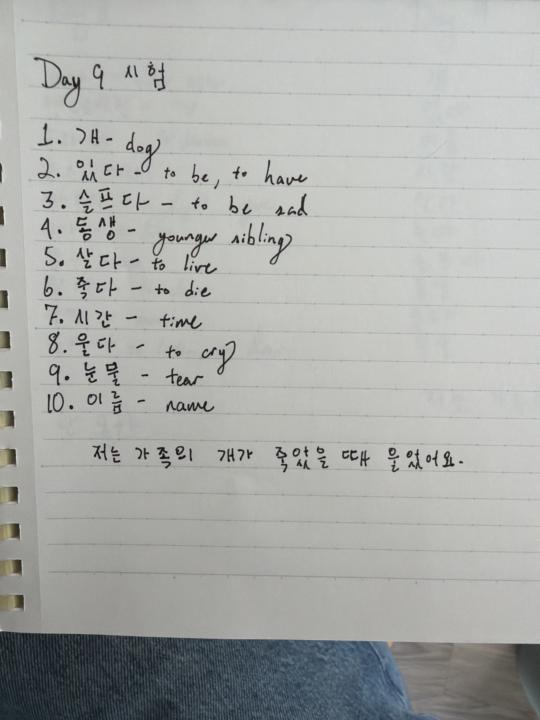 Day 9 시험
1. 개 - dog
2. 있다 - to be, to have
3. 슬프다 - to be sad
4. 동생 - younger sibling
5. 살다 - to live
6. 죽다 - to die
7. 시간 - time
8. 울다 - to cry
9. 눈물 - tear
10. 이름 - name
저는 가족의 개가 죽았을 때 울었어요.